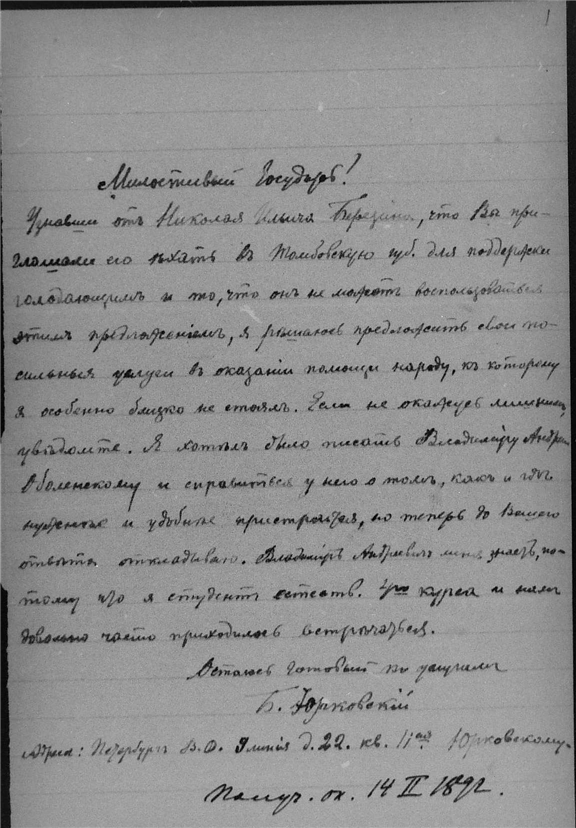 1
Милостивый Государь!
Узнавши отъ Николая Ильича Березина, что Вы при-
глашали его ѣхать въ Тамбовскую губ. для поддержки
голодающимъ и то, что онъ не можетъ воспользоваться
этимъ предложеніемъ, я рѣшаюсь предложить свои по-
сильныя услуги въ оказаніи помощи народу, къ которому
я особенно близко не стоялъ. Если не окажусь лишнимъ,
увѣдомте. Я хотѣлъ было писать Владиміру Андр.
Оболенскому и справиться у него о томъ, какъ и гдѣ
нужнѣе и удобнѣе пристроиться, но теперь до Вашего
отвѣта откладываю. Владиміръ Андреевичъ меня знаетъ, по-
тому что я студентъ естеств. 4го курса и намъ
довольно часто приходилось встрѣчаться.
Остаюсь готовый къ услугамъ
Б. Юрковскій
Адресъ: Петербургъ В.О. 9 линія д. 22. кв. 11ая Юрковскому.
Получ. ок. 14 II 1892.